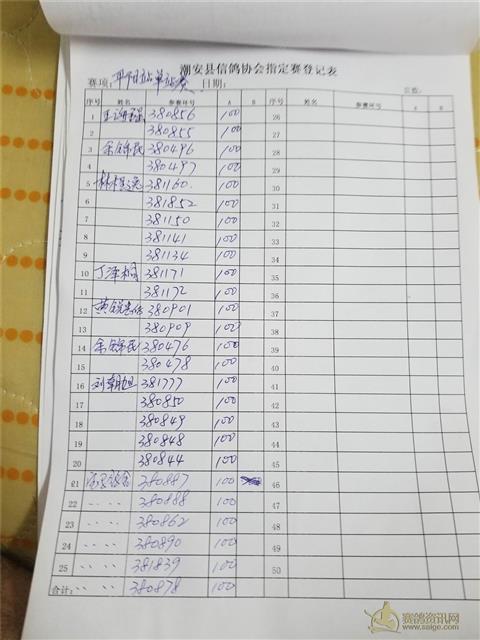 潮安县信鸽协会指定赛登记表
赛项: 单站赛 日期: 羽数:
序号 姓名 参赛环号 A B 序号 姓名 参赛环号 A B
1 380856 100 26
2 380855 100 27
3 余锦民 380496 100 28
4 380497 100 29
5 381160. 100 30
6 381852 100 31
7 381150 100 32
8 381141 100 33
9 381134 100 34
10 丁泽桐 381171 100 35
11 381172 100 36
12 380901 100 37
13 380909 100 38
14 余锦民 380476 100 39
15 380478 100 40
16 刘朝旭 381777 100 41
17 380850 100 42
18 380849 100 43
19 380848 100 44
20 380844 100 45
21 380887 100 46
22 380888 100 47
23 380862 100 48
24 380890 100 49
25 381839 100 50
合计: 380878 100
赛鸽资讯网
www.saige.com